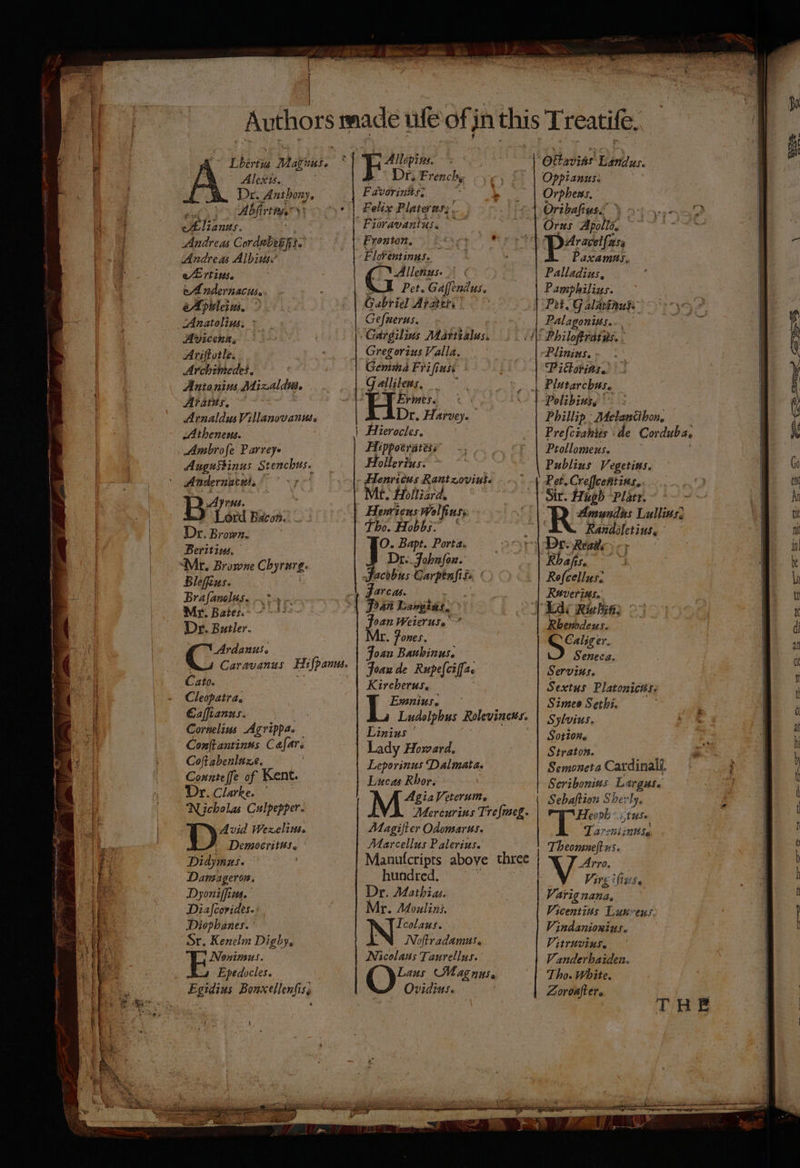 Authors made uſe of in this Treatiſe.
ALbertus Magnus.
Alexis.
Dr. Anthony.
Abſirtus.
Ælianus.
Andreas Cordubenſis.
Andreas Albius.
Ærtius.
Andernacus.
Apuleius.
Anatolius.
Avicenna,
Ariſtotle.
Archimedes.
Antonius Mizaldus.
Aratus,
Arnaldus Villanovanus.
Athenens.
Ambroſe Parrey.
Auguſtinus Stenchus.
Andernacus.
BAyrus.
Lord Bacon.
Dr. Brown.
Beritius.
Mr. Browne Chyrurg.
Bleſſeus.
Braſavolus.
Mr. Bates.
Dr. Butler.
CArdanus.
Caravanus Hiſpanus.
Cato.
Cleopatra,
Caſſianus.
Cornelius Agrippa.
Conſtantinus Cæſar.
Coſtabenluzæ.
Counteſſe of Kent.
Dr. Clarke.
Nicholas Culpepper.
DAvid Wexelius.
Democritus.
Didymus.
Damageron.
Dyoniſſius.
Diaſcorides.
Diophanes.
Sr. Kenelm Digby,
ENonimus.
Epedocles.
Egidius Bonxellenſis,
FAllopius.
Dr. French,
Favorinus,
Felix Platerus,
Fioravantus.
Fronton.
Florentinus.
GAllenus.
Pet. Gaſſendus.
Gabriel Aratus
Geſnerus.
Gargilius Martialus.
Gregorius Valla.
Gemma Friſius,
Gallileus.
HErmes.
Dr. Harvey.
Hierocles,
Hippocrates.
Hollerius.
Henricus Rantzovius.
Mr. Holliard,
Henricus Wolfius,
Tho. Hobbs.
JO. Bapt. Porta.
Dr. Johnſon.
Jacobus Carpenſis.
Jarcas.
Joan Langius,
Joan Weierus,
Mr. Jones.
Joan Bauhinus.
Joan de Rupeſciſſa.
Kircherus,
LEmnius.
Ludolphus Rolevincus.
Linius
Lady Howard,
Leporinus Dalmata.
Lucas Rhor.
MAgia Veterum,
Mercurius Treſmeg.
Magiſter Odomarus.
Marcellus Palerius.
Manuſcripts above three
hundred.
Dr. Mathias.
Mr. Moulins.
NIcolaus.
Noſtradamus.
Nicolaus Taurellus.
OLaus Magnus.
Ovidius.
Octavius Landus.
Oppianus.
Orpheus.
Oribaſius.
Orus Apollo,
PAracelſus,
Paxamus.
Palladius,
Pamphilius.
Pet. Galatinus.
Palagonius.
Philoſtratus.
Plinius.
Pictorius.
Plutarchus.
Polibius,
Phillip Melancthon,
Preſcianus de Corduba,
Ptollomeus.
Publius Vegetius.
Pet. Creſſcentius,
Sir. Hugh Platt.
RAmundus Lullius.
Randoletius,
Dr. Reade.
Rhaſis,
Roſcellus.
Ruverius.
Ld. Ruthin;
Rhenodeus.
SCaliger.
Seneca.
Servius.
Sextus Platonicus.
Simeo Sethi.
Sylvius.
Sotion.
Straton.
Semoneta Cardinali.
Scribonius Largus.
Sebaſtion Sherly.
THeophraſtus.
Tarentinus.
Theomneſtus.
VArro.
Virgilius,
Varignana,
Vicentius Lunrens.
Vindanionius.
Vitruvius.
Vanderhaiden.
Tho. White.
Zoroaſter.
THE